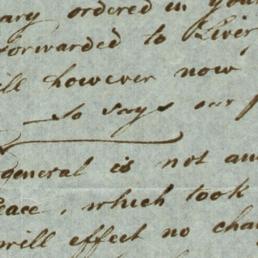 ary ordered in your
forwarded to Liver
ill however now
so says our p
general is not an
eace, which took
will effect no cha